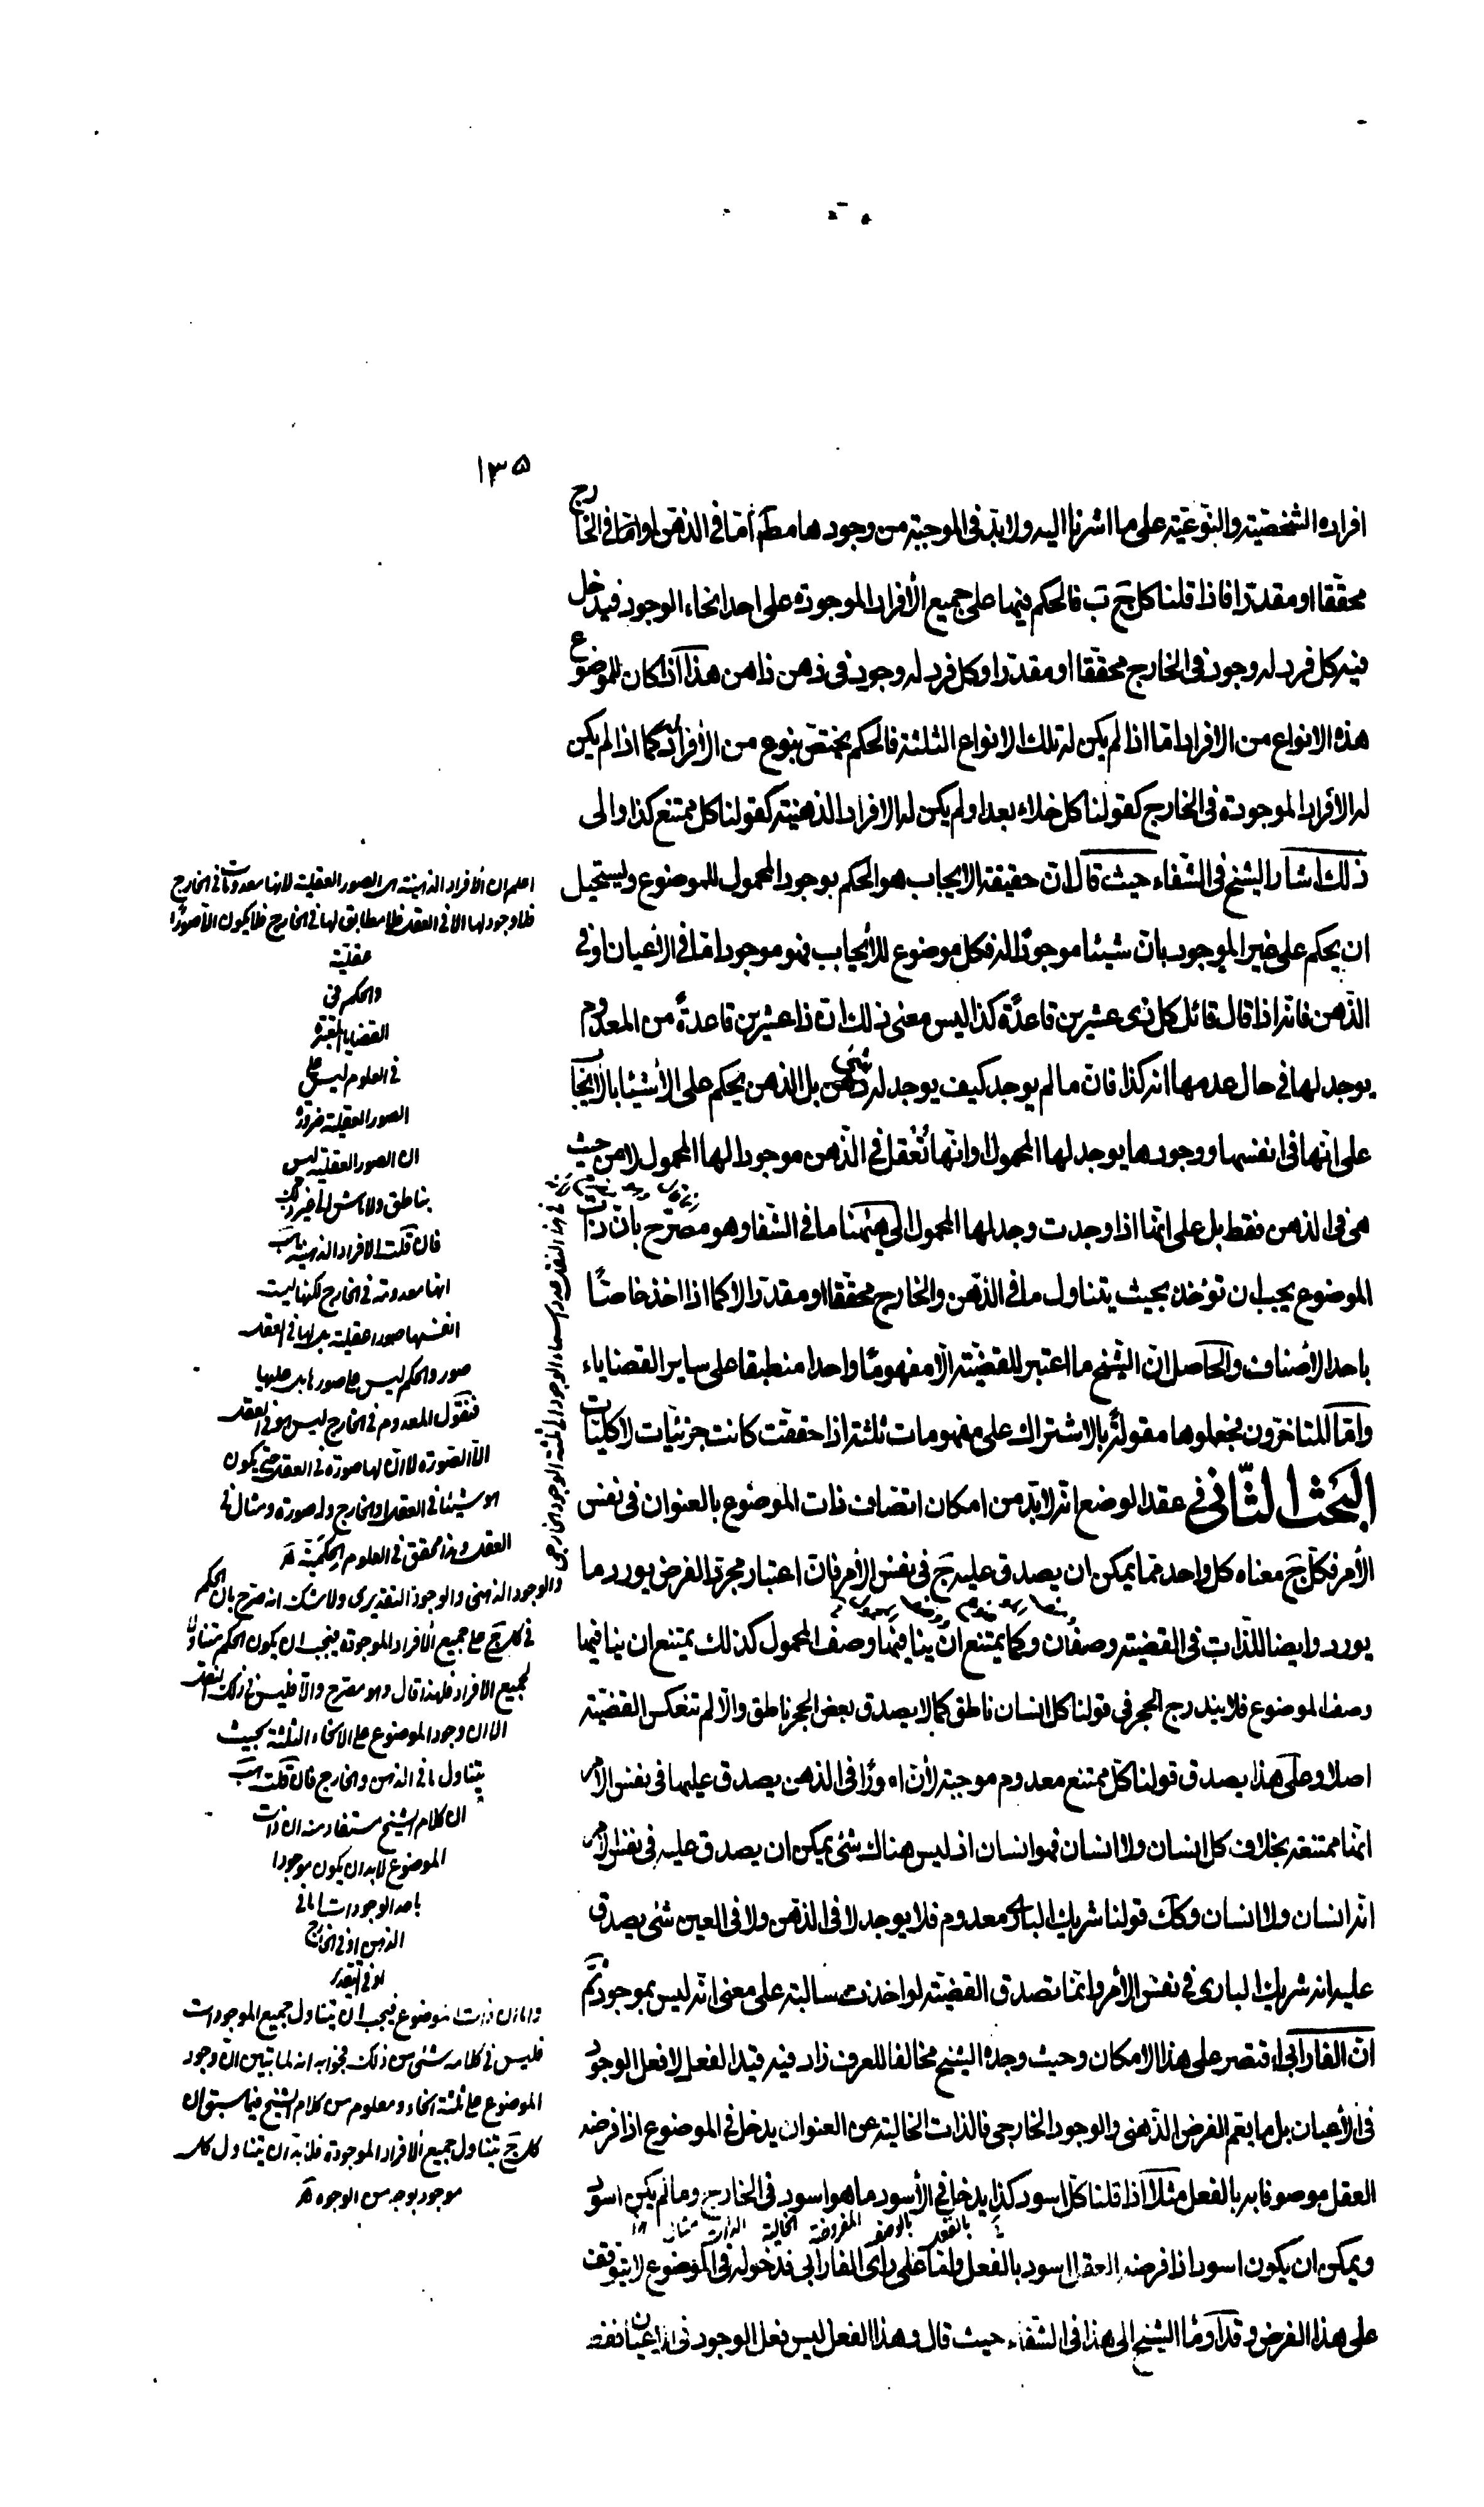 ١٣٥
افراده الشخصية والنوعية على ما اشرنا اليه ولا بد فى الموجبة من وجودها مطلقا اما فى الذهن واما فى الخارج
محققا او مقدرا فاذا قلنا كل ج ب فالحكم فيها على جميع الأفراد الموجودة على احد انحاء الوجود فيدخل
فيه كل فرد له وجود فى الخارج محققا او مقدرا وكل فرد له وجود فى ذهن ذاهن هذا اذا كان للموضوع
هذه الانواع من الافراد اما اذا لم يكن له تلك الانواع الثلثة فالحكم يختص بنوع من الأفراد كما اذا لم يكن
له الأفراد الموجودة فى الخارج كقولنا كل خلاء بعد او لم يكن له الافراد الذهنية كقولنا كل ممتنع كذا والى
ذلك اشار الشيخ فى الشفاء حيث قال ان حقيقة الايجاب هو الحكم بوجود المحمول للموضوع ويستحيل
ان يحكم على غير الموجود بان شيئا موجودا له فكل موضوع للأيجاب فهو موجود اما فى الاعيان او فى
الذهن فانه اذا قال قائل كل ذى عشرين قاعدة كذا ليس معنى ذلك ان ذا عشرين قاعدة من المعدوم
يوجد لها فى حال عدمها انه كذا فان ما لم يوجد كيف يوجد له شئ بل الذهن يحكم على الأشيئا بالأيجاب
على انها فى انفسها ووجودها يوجد لها المحمول او انها تعقل فى الذهن موجودا لها المحمول لا من حيث
هى فى الذهن فقط بل على انها اذا وجدت وجد لها المحمول الى هيهنا ما فى الشفا وهو مصرح بان ذات
الموضوع يجب ان تؤخذ بحيث يتناول ما فى الذهن والخارج محققا او مقدرا لا كما اذا اخذ خاصا
باحد الأصناف والحاصل ان الشيخ ما اعتبر للقضية الا مفهوما واحدا منطبقا على ساير القضاياء
واما المتاخرون فجعلوها مقولة بالاشتراك على مفهومات ثلثة اذا حققت كانت جزئيات لا كليات
البحث الثانى فى عقد الوضع انه لا بد من امكان اتصاف ذات الموضوع بالعنوان فى نفس
الأمر فكل ج معناه كل واحد مما يمكن ان يصدق عليه ج فى نفس الأمر فان اعتبار مجرد الفرض يورد ما
يورد وايضا للذات فى القضية وصفان وكما يمتنع ان ينافيها وصف المحمول كذلك يمتنع ان ينافيها
وصف الموضوع فلا يندرج الحجر فى قولنا كل انسان ناطق كما لا يصدق بعض الحجر ناطق والا لم تنعكس القضية
اصلا وعلى هذا يصدق قولنا كل ممتنع معدوم موجبة لأن امورا فى الذهن يصدق عليها فى نفس الأمر
انها ممتنعة بخلاف كل انسان ولا انسان فهو انسان اذ ليس هناك شئ يمكن ان يصدق عليه فى نفس الأمر
انه انسان ولا انسان وكك قولنا شريك البارى معدوم فلا يوجد لا فى الذهن ولا فى العين شئ يصدق
عليه انه شريك البارى فى نفس الأمر وانما تصدق القضية لو اخذت سالبة على معنى انه ليس بموجود ثم
ان الفارابى اقتصر على هذا الامكان وحيث وجده الشيخ مخالفا للعرف زاد فيه قيد الفعل لا فعل الوجود
فى الأعيان بل ما يعم الفرض الذهنى والوجود الخارجى فالذات الخالية عن العنوان يدخل فى الموضوع اذا فرضه
العقل موصوفا به بالفعل مثلا اذا قلنا كل اسود كذا يدخل فى الأسود ما هو اسود فى الخارج وما لم يكن اسود
ويمكن ان يكون اسود اذا فرضه العقل اسود بالفعل واما على راى الفارابى فدخوله فى الموضوع لا يتوقف
على هذا الفرض وقد اوما الشيخ الى هذا فى الشفاء حيث قال وهذا الفعل ليس فعل الوجود فى الاعيان فقط
اعلم ان الأفراد الذهنية هى الصور العقلية لانها معدومات فى الخارج
فلا وجود لها الا فى العقل فلا مطابق لها فى الخارج فلا يكون الا صورا
عقلية
والحكم فى
القضايا المعتبرة
فى العلوم ليس على
الصور العقلية ضرورة
ان الصور العقلية ليس
بناطق ولا ماش الى غير ذلك
فان قلت الافراد الذهنية هب
انها معدومة فى الخارج لكنها ليست
انفسها صورا عقلية بل لها فى العقل
صور والحكم ليس على صورها بل عليها
فنقول المعدوم فى الخارج ليس هو فى العقل
الا الصورة لا ان لها صورة فى العقل حتى يكون
هو شيئا فى العقل او الخارج وله صورة ومثال فى
العقل وهذا محقق فى العلوم الحكمية
والوجود الذهنى والوجود التقديرى ولا شك انه صرح بان الحكم
فى كل ج على جميع الأفراد الموجودة فيجب ان يكون الحكم متناولا
لجميع الافراد فلهذا قال وهو مصرح والا فليس فى ذلك النقل
الا ان وجود الموضوع على الانحاء الثلثة بحيث
يتناول ما فى الذهن والخارج فان قلت هب
ان كلام الشيخ مستفاد منه ان ذات
الموضوع لا بد ان يكون موجودا
باحد الوجودات اما فى
الذهن او فى الخارج
او فى التقدير
واما ان ذات الموضوع فيجب ان يتناول جميع الموجودات
فليس فى كلامه شئ من ذلك فجوابه انه لما تبين ان وجود
الموضوع على ثلثة انحاء ومعلوم من كلام الشيخ فيما سبق ان
كل ج يتناول جميع الأفراد الموجودة فلا بد ان يتناول كل
موجود بوجه من الوجوه